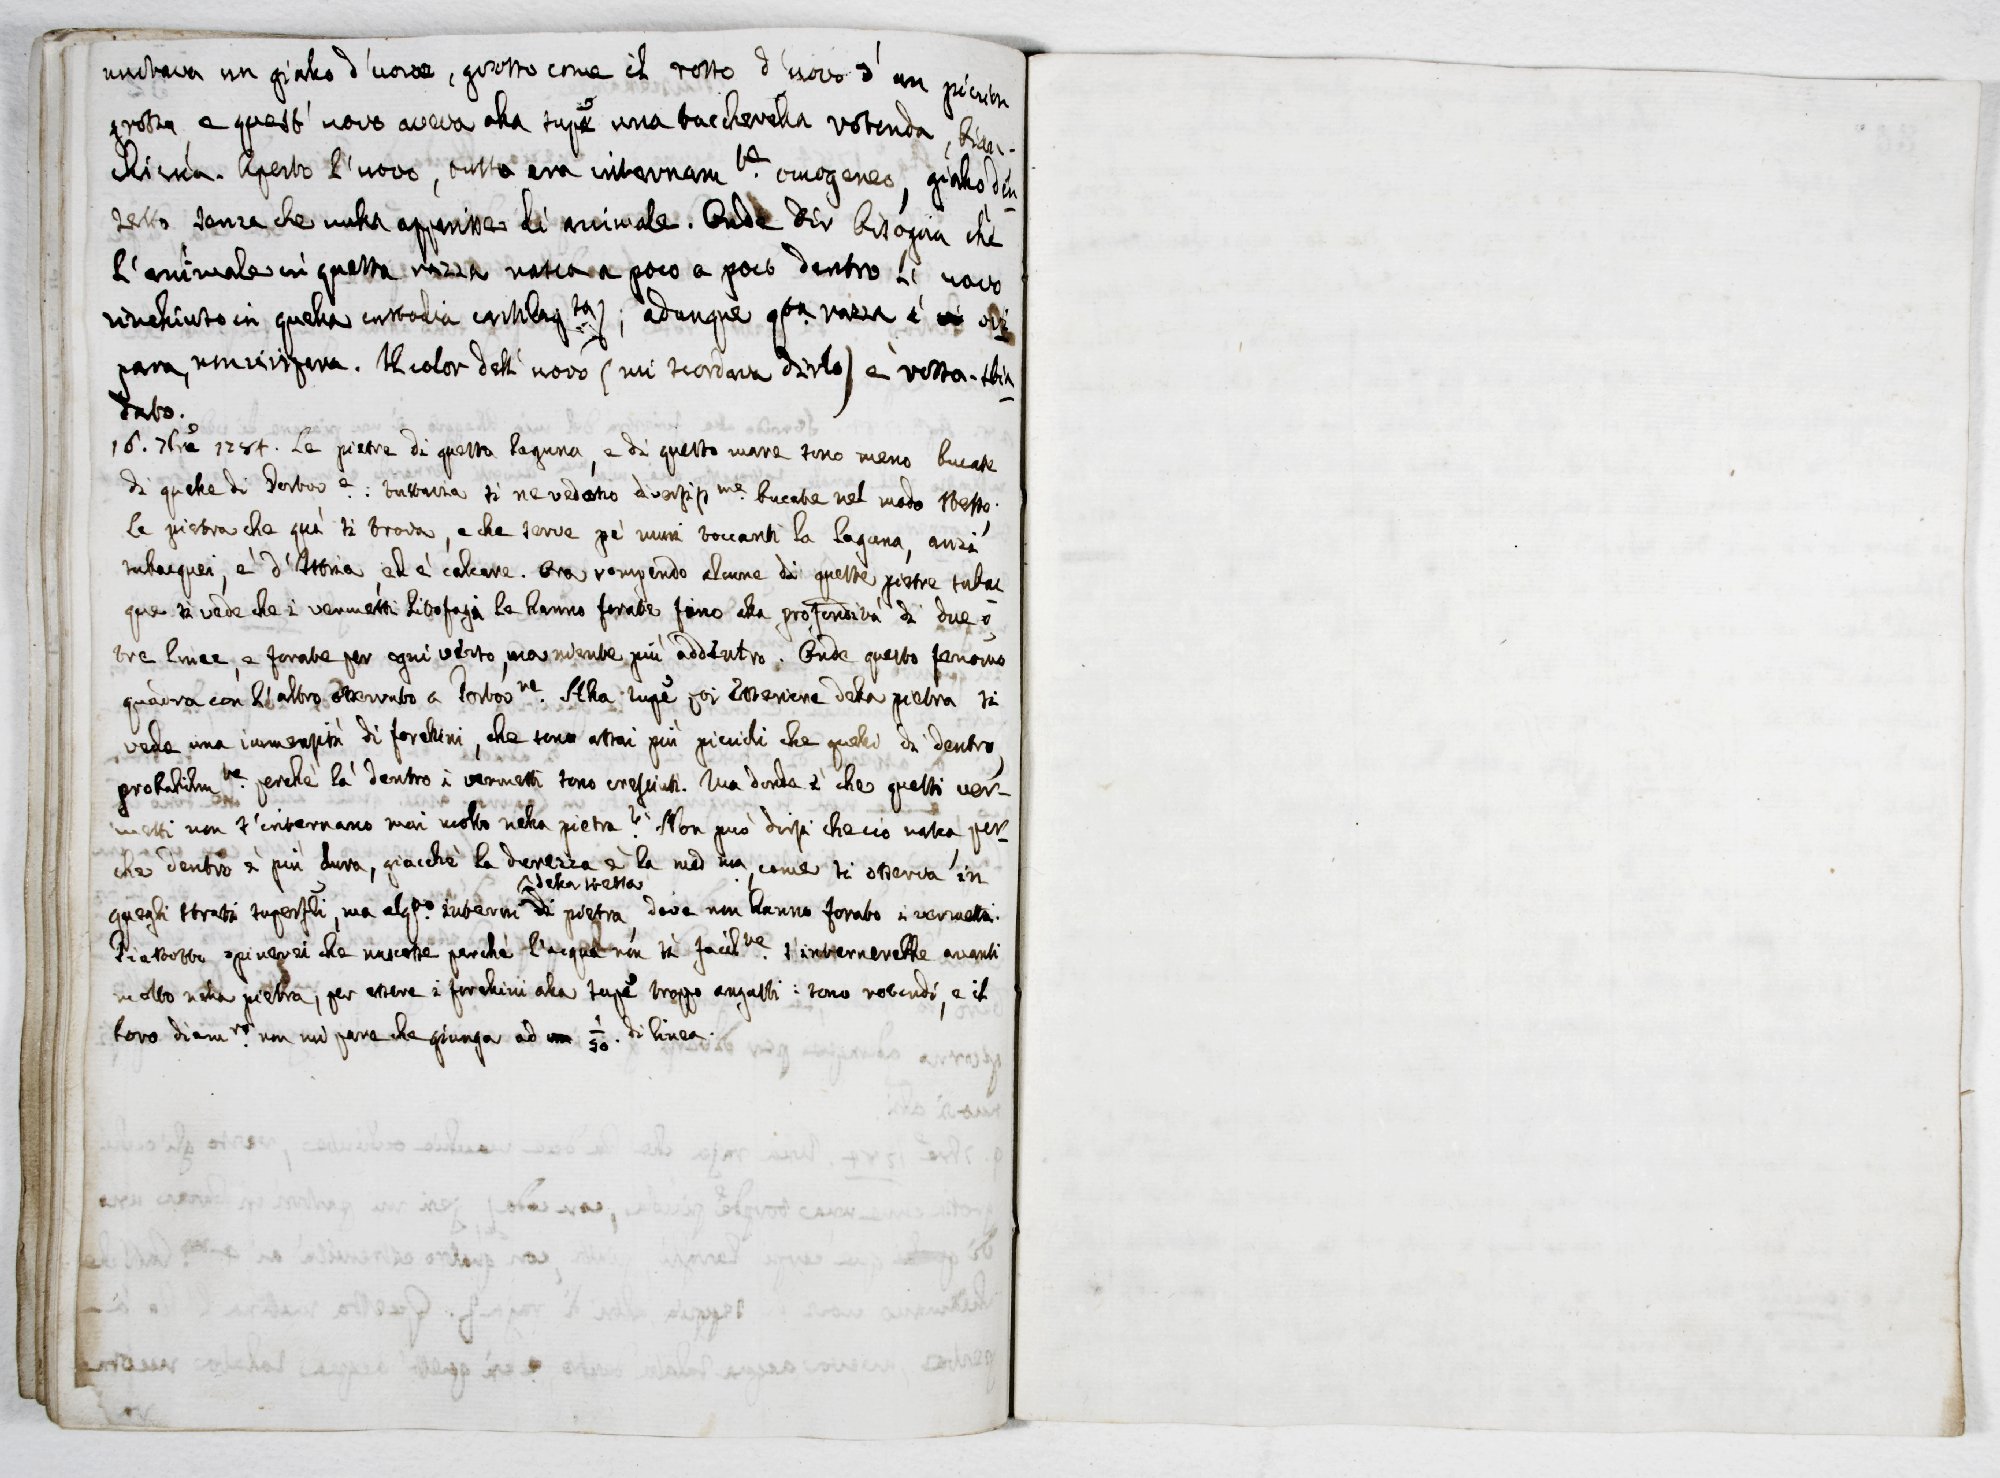 nuotava un giallo d'uovo, grosso come il rosso d'uovo d'un piccion
grosso, e quest'uovo aveva alla supe una maccherella rotonda, bian-
chiccia. Aperto l'uovo, tutto era internam.te omogeneo, giallo den
senza che nulla apparisse di animale. Onde dir bisogna che
l'animale in questa razza nasca a poco a poco dentro l'uovo
rinchiuso in quella custodia cartilag.sa; adunque q.ta razza è ovi
para, non vivipara. Il color dell'uovo (mi scordava dirlo) è rosso-sbia
dato.
16. 7bre 1784. Le pietre di questa laguna, e di questo mare sono meno bucate
di quelle di Portov.e: tuttavia si ne vedono diversis.me bucate nel modo stesso.
La pietra che quì si trova, e che serve pe' muri toccanti la laguna, anzi
subacquei, è d'Istria, ed è calcare. Ora rompendo alcune di queste pietre subac
que si vede che i vermetti litofagi le hanno forate fino alla profondità di due o
tre linee, e forate per ogni verso, ma niente più addentro. Onde questo fenomo
quadra con l'altro osservato a Portov.ne. Alla supe poi esteriore della pietra si
vede una immensità di forellini, che sono assai più piccioli che quelli di dentro,
probabilm.te perchè là dentro i vermetti sono cresciuti. Ma donde è che questi ver-
metti non s'internano mai molto nella pietra? Non può dirsi che ciò nasca per-
che dentro è più dura, giacchè la durezza è la med.ma, come si osserva in
quegli strati superfli, ma alq.to interni della stessa di pietra dove non hanno forato i vermetti.
Piuttosto opinerei che nascesse perchè l'acqua non sì facil.te s'internerebbe avanti
molto nella pietra, per essere i forellini alla supe troppo angusti: sono rotondi, e il
loro diam.ro non mi pare che giunga ad 1/50. di linea.